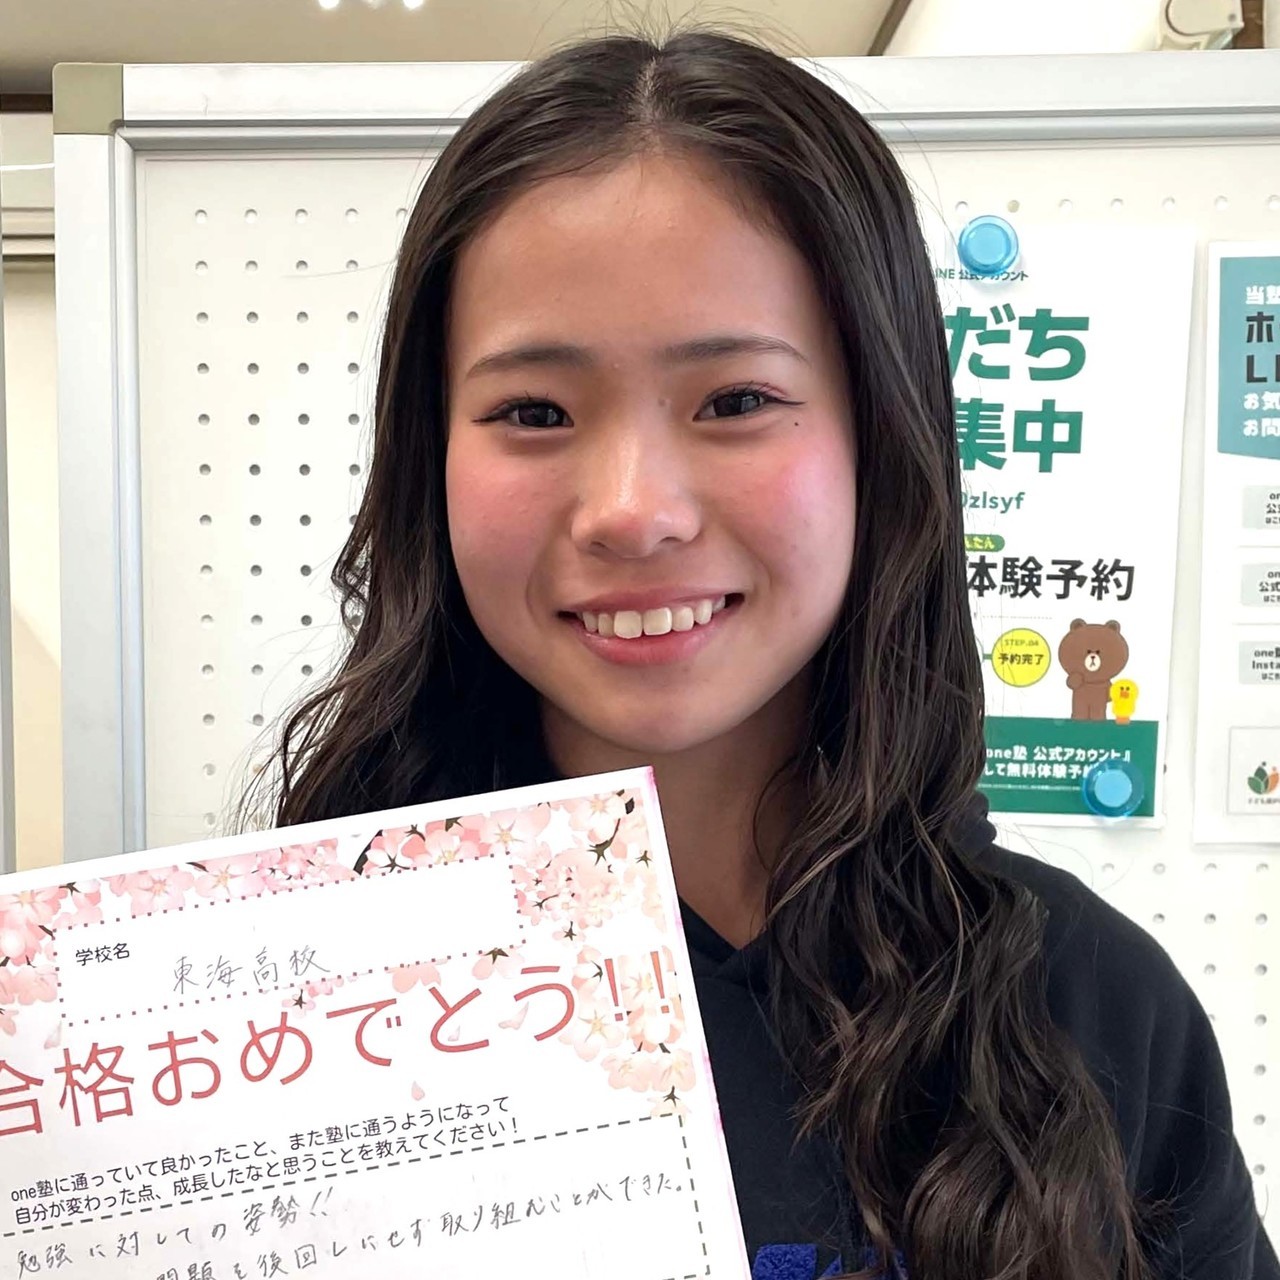 LINE 公式アカウント
だち
集中
0zlsyf
んたん
体験予約
STEP.04
予約完了
one塾 公式アカウント』
して無料体験予
当塾
ホ
お気
お問
one
公式
はこち
one塾
Insta
はこち
学校名
東海高校
合格おめでとう!!
one塾に通っていて良かったこと、また塾に通うようになって
自分が変わった点、成長したなと思うことを教えてください！
勉強に対しての姿勢!!
問題を後回しにせず取り組むことができた。